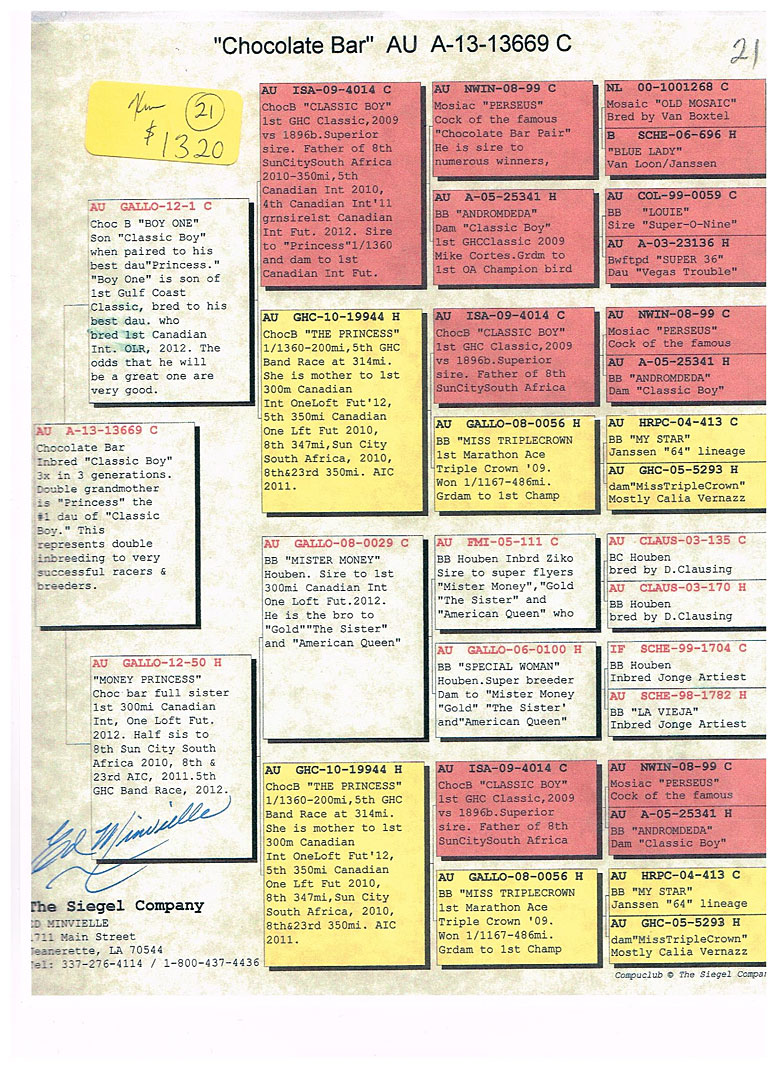 "Chocolate Bar" AU A-13-13669 C
21
21
$1320
AU GALLO-12-1 C
Choc B "BOY ONE"
Son "Classic Boy"
when paired to his
best dau"Princess."
"Boy One" is son of
1st Gulf Coast
Classic, bred to his
best dau. who
bred 1st Canadian
Int. OLR, 2012. The
odds that he will
be a great one are
very good.
AU A-13-13669 C
Chocolate Bar
Inbred "Classic Boy"
3x in 3 generations.
Double grandmother
is "Princess" the
#1 dau of "Classic
Boy." This
represents double
inbreeding to very
successful racers &
breeders.
AU GALLO-12-50 H
"MONEY PRINCESS"
Choc bar full sister
1st 300mi Canadian
Int, One Loft Fut.
2012. Half sis to
8th Sun City South
Africa 2010, 8th &
23rd AIC, 2011.5th
GHC Band Race, 2012.
Ed Minvielle
The Siegel Company
ED MINVIELLE
1711 Main Street
Jeanerette, LA 70544
Tel: 337-276-4114 / 1-800-437-4436
AU ISA-09-4014 C
ChocB "CLASSIC BOY"
1st GHC Classic,2009
vs 1896b.Superior
sire. Father of 8th
SunCitySouth Africa
2010-350mi,5th
Canadian Int 2010,
4th Canadian Int'11
grnsire1st Canadian
Int Fut. 2012. Sire
to "Princess"1/1360
and dam to 1st
Canadian Int Fut.
AU GHC-10-19944 H
ChocB "THE PRINCESS"
1/1360-200mi,5th GHC
Band Race at 314mi.
She is mother to 1st
300m Canadian
Int OneLoft Fut'12,
5th 350mi Canadian
One Lft Fut 2010,
8th 347mi,Sun City
South Africa, 2010,
8th&23rd 350mi. AIC
2011.
AU GALLO-08-0029 C
BB "MISTER MONEY"
Houben. Sire to 1st
300mi Canadian Int
One Loft Fut.2012.
He is the bro to
"Gold""The Sister"
and "American Queen"
AU GHC-10-19944 H
ChocB "THE PRINCESS"
1/1360-200mi,5th GHC
Band Race at 314mi.
She is mother to 1st
300m Canadian
Int OneLoft Fut'12,
5th 350mi Canadian
One Lft Fut 2010,
8th 347mi,Sun City
South Africa, 2010,
8th&23rd 350mi. AIC
2011.
AU NWIN-08-99 C
Mosiac "PERSEUS"
Cock of the famous
"Chocolate Bar Pair"
He is sire to
numerous winners,
AU A-05-25341 H
BB "ANDROMDEDA"
Dam "Classic Boy"
1st GHCClassic 2009
Mike Cortes.Grdm to
1st OA Champion bird
AU ISA-09-4014 C
ChocB "CLASSIC BOY"
1st GHC Classic,2009
vs 1896b.Superior
sire. Father of 8th
SunCitySouth Africa
AU GALLO-08-0056 H
BB "MISS TRIPLECROWN
1st Marathon Ace
Triple Crown '09.
Won 1/1167-486mi.
Grdam to 1st Champ
AU FMI-05-111 C
BB Houben Inbrd Ziko
Sire to super flyers
"Mister Money","Gold
"The Sister" and
"American Queen" who
AU GALLO-06-0100 H
BB "SPECIAL WOMAN"
Houben.Super breeder
Dam to "Mister Money
"Gold" "The Sister'
and"American Queen"
AU ISA-09-4014 C
ChocB "CLASSIC BOY"
1st GHC Classic,2009
vs 1896b.Superior
sire. Father of 8th
SunCitySouth Africa
AU GALLO-08-0056 H
BB "MISS TRIPLECROWN
1st Marathon Ace
Triple Crown '09.
Won 1/1167-486mi.
Grdam to 1st Champ
NL 00-1001268 C
Mosaic "OLD MOSAIC"
Bred by Van Boxtel
B SCHE-06-696 H
"BLUE LADY"
Van Loon/Janssen
AU COL-99-0059 C
BB "LOUIE"
Sire "Super-O-Nine"
AU A-03-23136 H
Bwftpd "SUPER 36"
Dau "Vegas Trouble"
AU NWIN-08-99 C
Mosiac "PERSEUS"
Cock of the famous
AU A-05-25341 H
BB "ANDROMDEDA"
Dam "Classic Boy"
AU HRPC-04-413 C
BB "MY STAR"
Janssen "64" lineage
AU GHC-05-5293 H
dam"MissTripleCrown"
Mostly Calia Vernazz
AU CLAUS-03-135 C
BC Houben
bred by D.Clausing
AU CLAUS-03-170 H
BB Houben
bred by D.Clausing
IF SCHE-99-1704 C
BB Houben
Inbred Jonge Artiest
AU SCHE-98-1782 H
BB "LA VIEJA"
Inbred Jonge Artiest
AU NWIN-08-99 C
Mosiac "PERSEUS"
Cock of the famous
AU A-05-25341 H
BB "ANDROMDEDA"
Dam "Classic Boy"
AU HRPC-04-413 C
BB "MY STAR"
Janssen "64" lineage
AU GHC-05-5293 H
dam"MissTripleCrown"
Mostly Calia Vernazz
Compuclub © The Siegel Compan